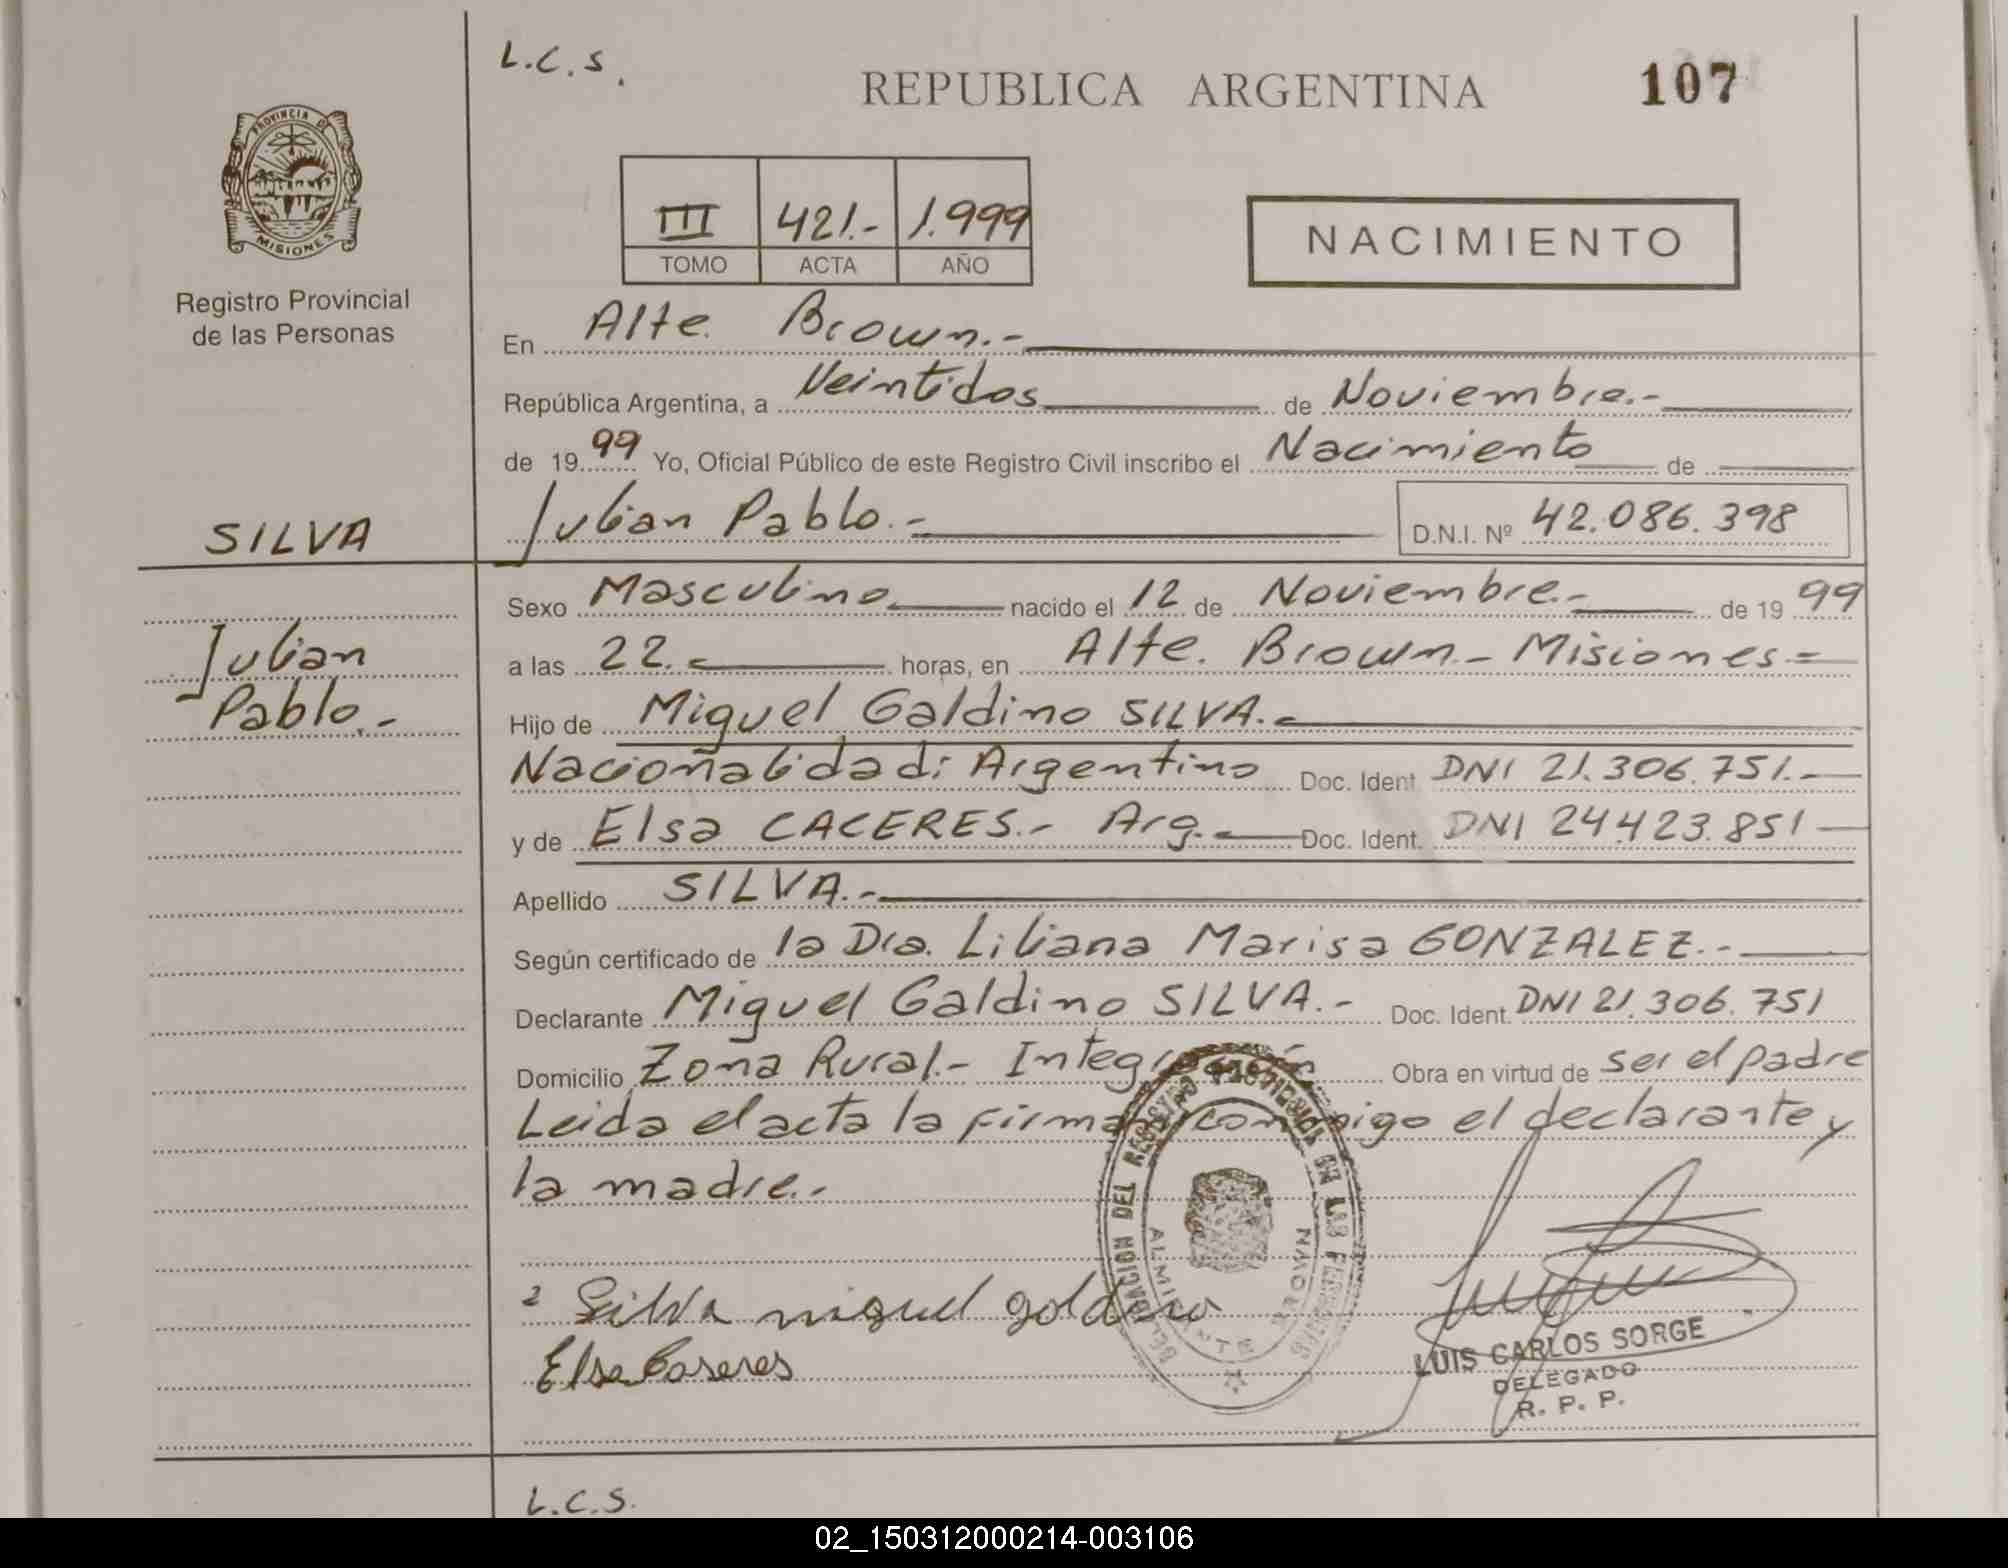 L.C.S.
REPUBLICA ARGENTINA
107
PROVINCIA DE
MISIONES
Registro Provincial
de las Personas
III 421.- 1.999
TOMO ACTA AÑO
NACIMIENTO
En Alte. Brown.-
República Argentina, a Veintidos de Noviembre.-
de 1999 Yo, Oficial Público de este Registro Civil inscribo el Nacimiento de
Julian Pablo.- D.N.I. Nº 42.086.398
SILVA
Julian
Pablo.-
Sexo Masculino nacido el 12 de Noviembre.- de 1999
a las 22.- horas, en Alte. Brown.- Misiones.=
Hijo de Miguel Galdino SILVA.-
Nacionalidad: Argentino Doc. Ident. DNI 21.306.751.-
y de Elsa CACERES.- Arg.- Doc. Ident. DNI 24.423.851
Apellido SILVA.-
Según certificado de la Dra. Liliana Marisa GONZALEZ.-
Declarante Miguel Galdino SILVA.- Doc. Ident. DNI 21.306.751
Domicilio Zona Rural.- Integración Obra en virtud de ser el padre
Leida el acta la firman conmigo el declarante y
la madre.-
Silva miguel goldino
Elsa Caseres
DELEGACION DEL REGISTRO PROVINCIAL DE LAS PERSONAS
ALMIRANTE BROWN
LUIS CARLOS SORGE
DELEGADO
R. P. P.
L.C.S.
02_150312000214-003106